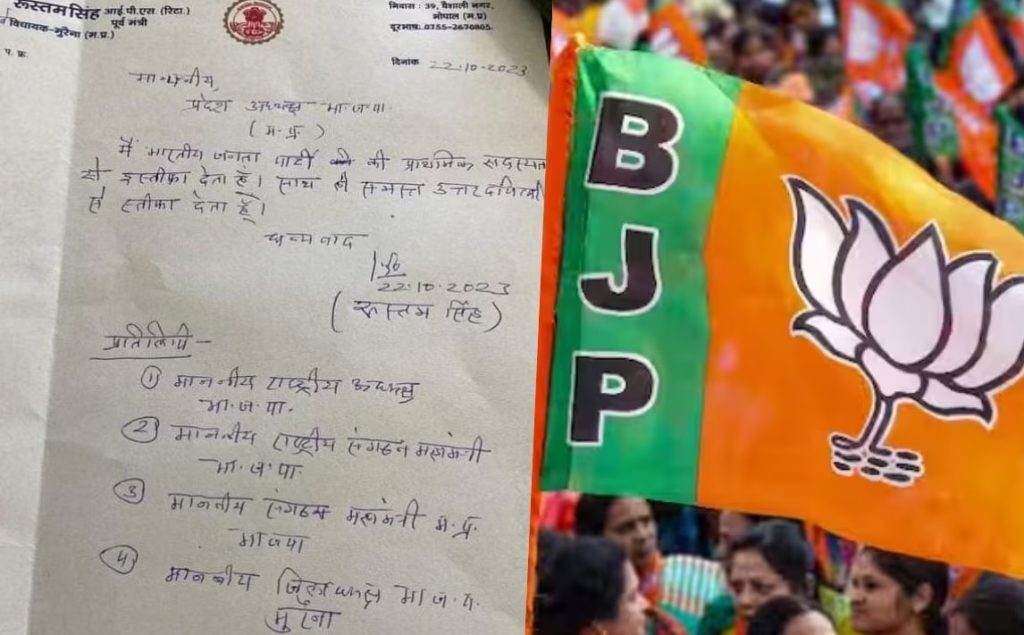 रूस्तमसिंह आई.पी.एस (रिटा.)
पूर्व मंत्री
विधायक-मुरैना (म.प्र.)
निवास : 39, वैशाली नगर,
भोपाल (म.प्र)
दूरभाष: 0755-2670805.
प. क्र.
दिनांक 22.10.2023
माननीय,
प्रदेश अध्यक्ष भा.ज.पा.
(म.प्र.)
मैं भारतीय जनता पार्टी की प्राथमिक सदस्यता
से इस्तीफा देता हूँ। साथ ही समस्त उत्तरदायित्वों
से स्तीफा देता हूँ।
धन्यवाद
22.10.2023
(रूस्तम सिंह)
प्रतिलिपी -
1 माननीय राष्ट्रीय अध्यक्ष
भा.ज.पा.
2 माननीय राष्ट्रीय संगठन महामंत्री
भा.ज.पा
3 माननीय संगठन महामंत्री म.प्र.
भाजपा
4 माननीय जिलाध्यक्ष भा.ज.पा.
मुरैना
BJP